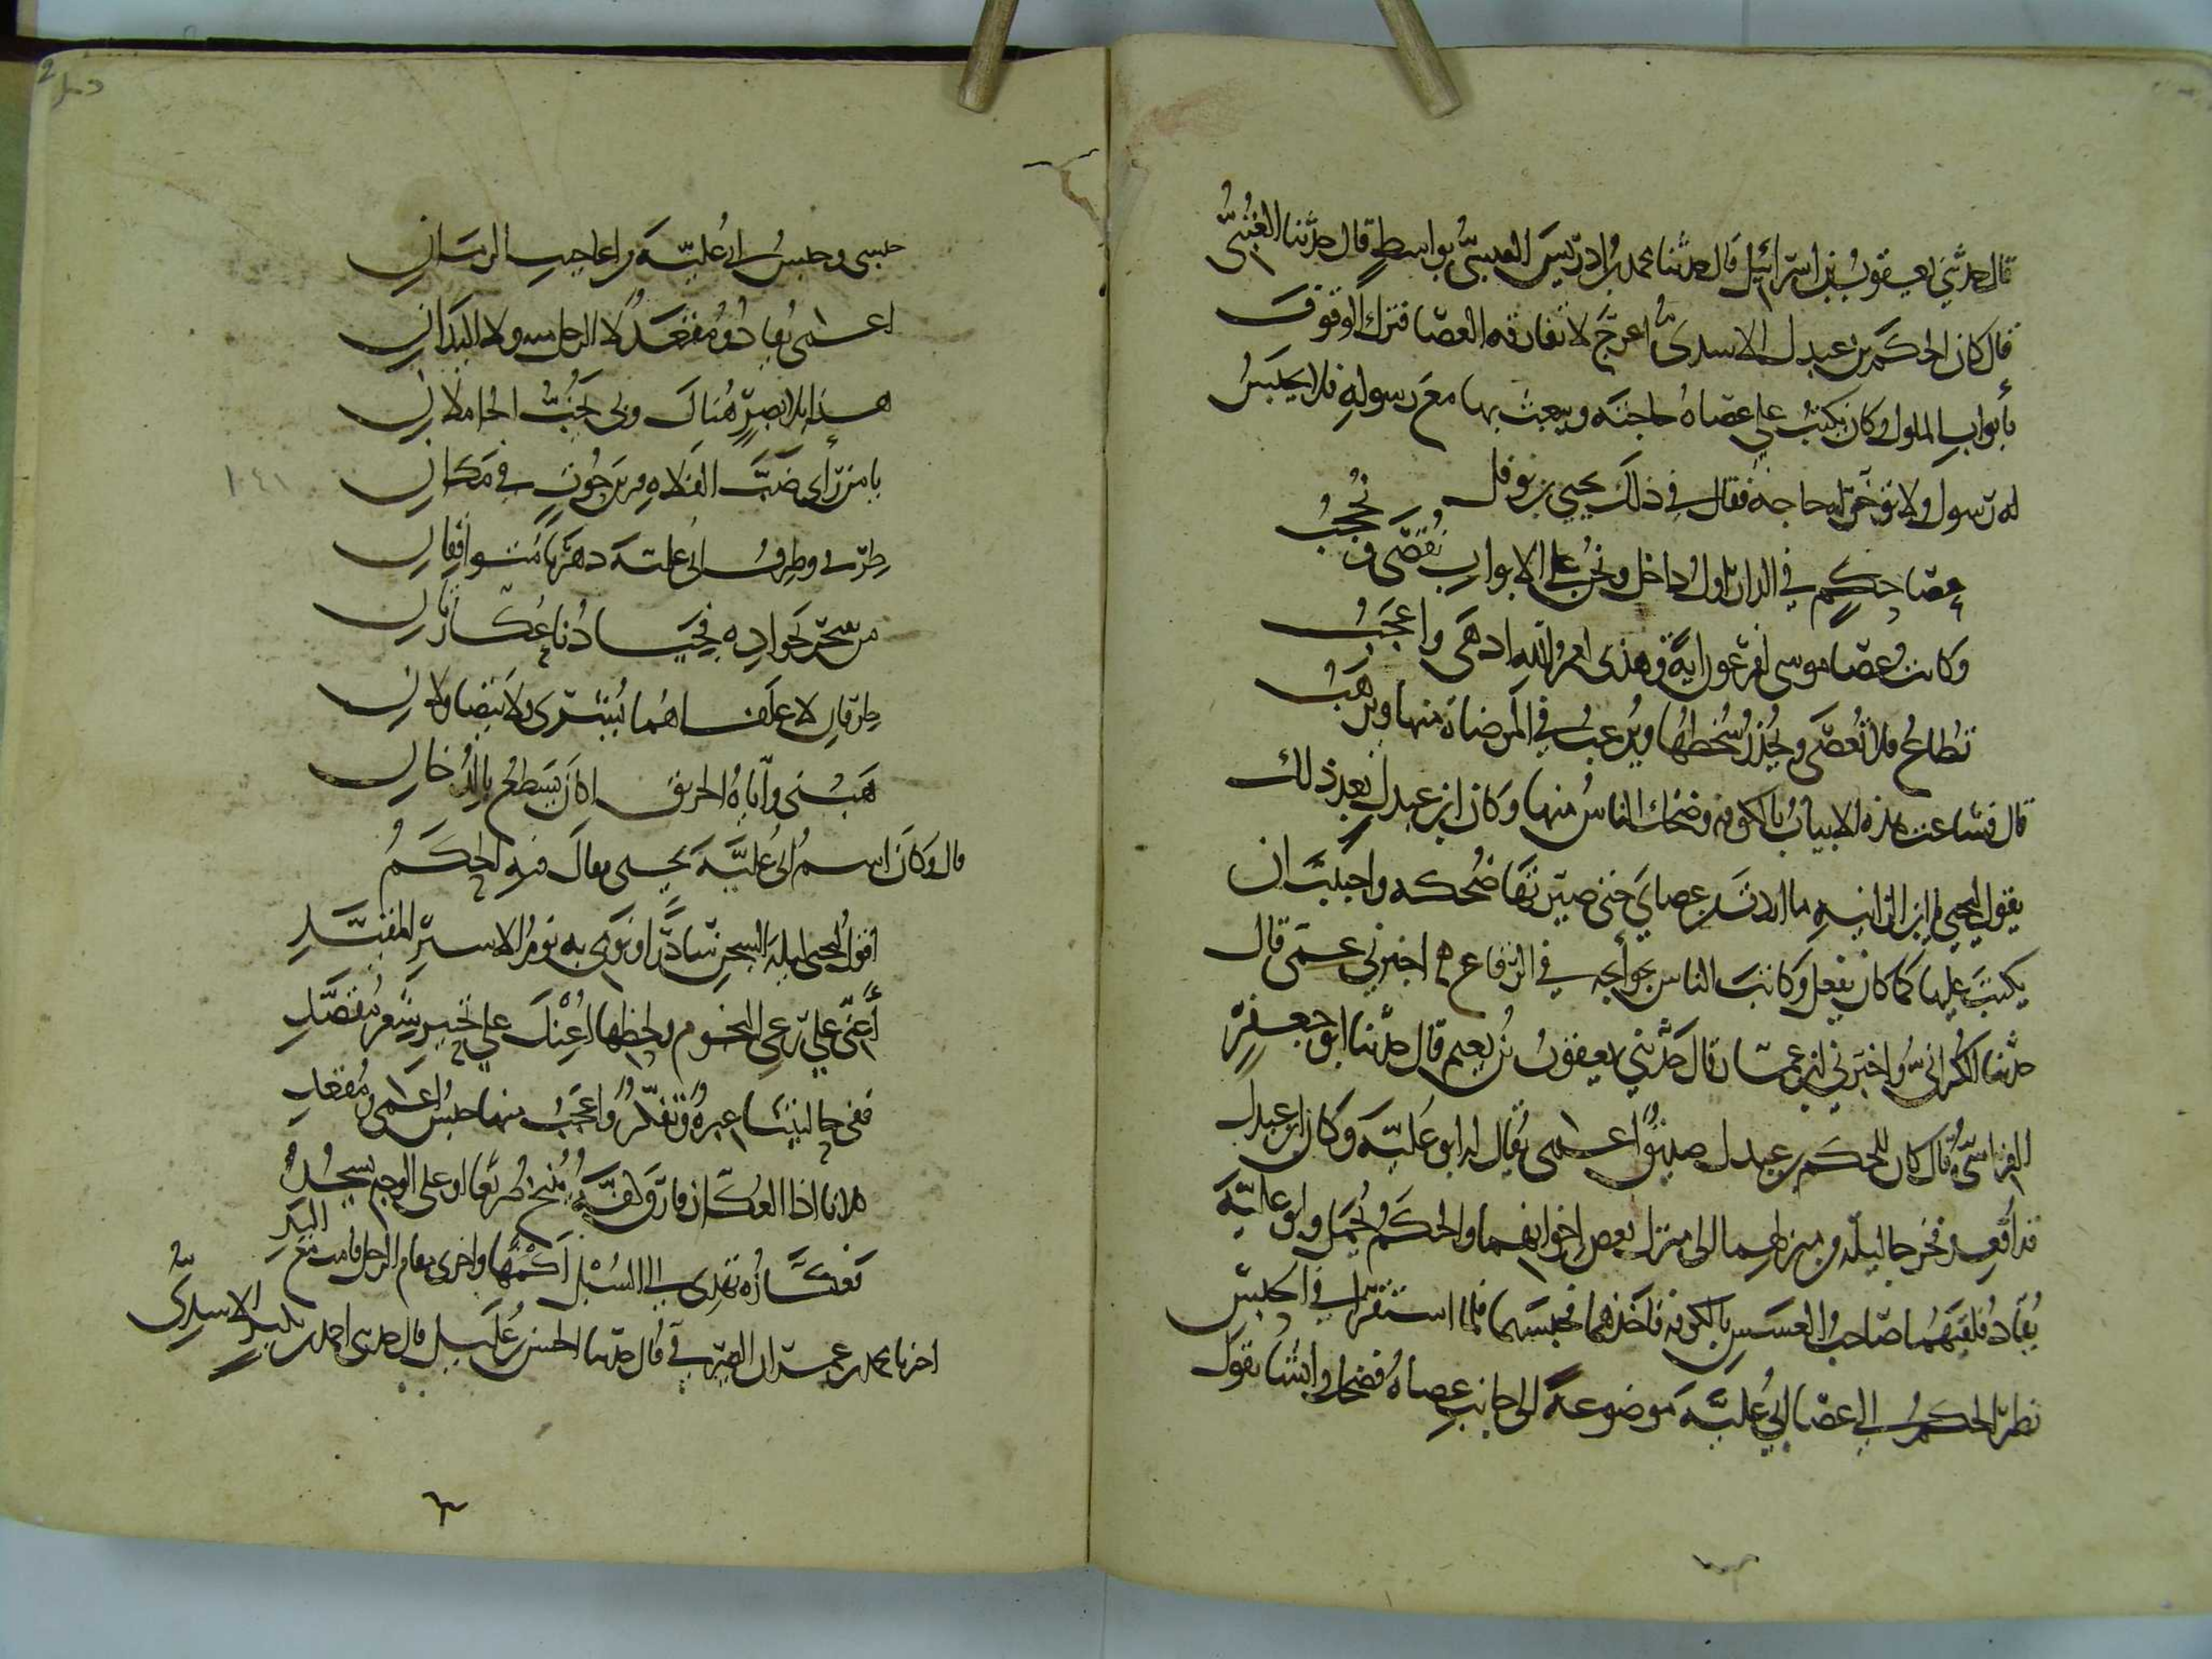 قال حدثني يعقوب بن اسرائيل قال حدثنا محمد بن ادريس القيسي بواسط قال حدثنا العتبي
قال كان الحكم بن عبدل الاسدي اعرج لا تفارقه العصا فترك الوقوف
بأبواب الملوك وكان يكتب على عصاه حاجته ويبعث بها مع رسوله فلا يحبس
له رسول ولا تؤخر له حاجة فقال في ذلك يحيى بن نوفل
عصا حكم في الدار اول داخل ونحن على الابواب نقصى ونحجب
وكانت عصا موسى لفرعون اية فهذى لعمر الله ادهى واعجب
تطاع فلا تعصى ويحذر سخطها ويرغب في المرضاة منها ويرهب
قال فشاعت هذه الابيات بالكوفة وضحك الناس منها وكان ابن عبدل بعد ذلك
يقول ليحيى يا ابن الزانية ما اردت من عصاي حتى صيرتها ضحكة واجتنب ان
يكتب عليها كما كان يفعل وكاتب الناس بحوائجه في الرقاع اخبرني عمى قال
حدثنا الكراني واخبرني ابن عمار قال حدثني يعقوب بن نعيم قال حدثنا ابو جعفر
القرشي قال كان للحكم بن عبدل صديق اعمى يقال له ابو علية وكان ابن عبدل
قد اقعد فخرجا ليلة من منزلهما الى منزل بعض اخوانهما والحكم يحمل وابو علية
يقاد فلقيهما صاحب العسس بالكوفة فاخذهما فحبسهما فلما استقرا في الحبس
نظر الحكم الى عصا ابي علية موضوعة الى جانب عصاه فضحك وانشا يقول
حبسى وحبس ابى علية من اعاجيب الزمان
اعمى يقاد ومقعد لا الرجل منه ولا اليدان
هذا بلا بصر هناك وبى يخب الحاملان
يا من رأى ضب الفلاة قرين حوت في مكان
طرفى وطرف ابى علية دهرنا متوافقان
من يفتخر بجواده فجيادنا عكازتان
طرفان لا علفاهما يشترى ولا يتصاولان
هبنى واياه الحريق اكان يسطع بالدخان
قال وكان اسم ابى علية يحيى فقال فيه الحكم
اقول ليحيى ليلة السجن سادرا ونومى به نوم الاسير المقيد
أعنى على رعى النجوم ولحظها اعنك على تحبير شعر مقصد
ففى حالتينا عبرة وتفكر واعجب منها حبس اعمى ومقعد
كلانا اذا العكاز فارق كفه ينيخ صريعا او على الوجه يسجد
فعكازة تهدى الى السبل اكمها واخرى مقام الرجل قامت مع اليد
اخبرنا محمد بن عمران الصيرفي قال حدثنا الحسن بن عليل قال حدثنى احمد بن بكير الاسدي